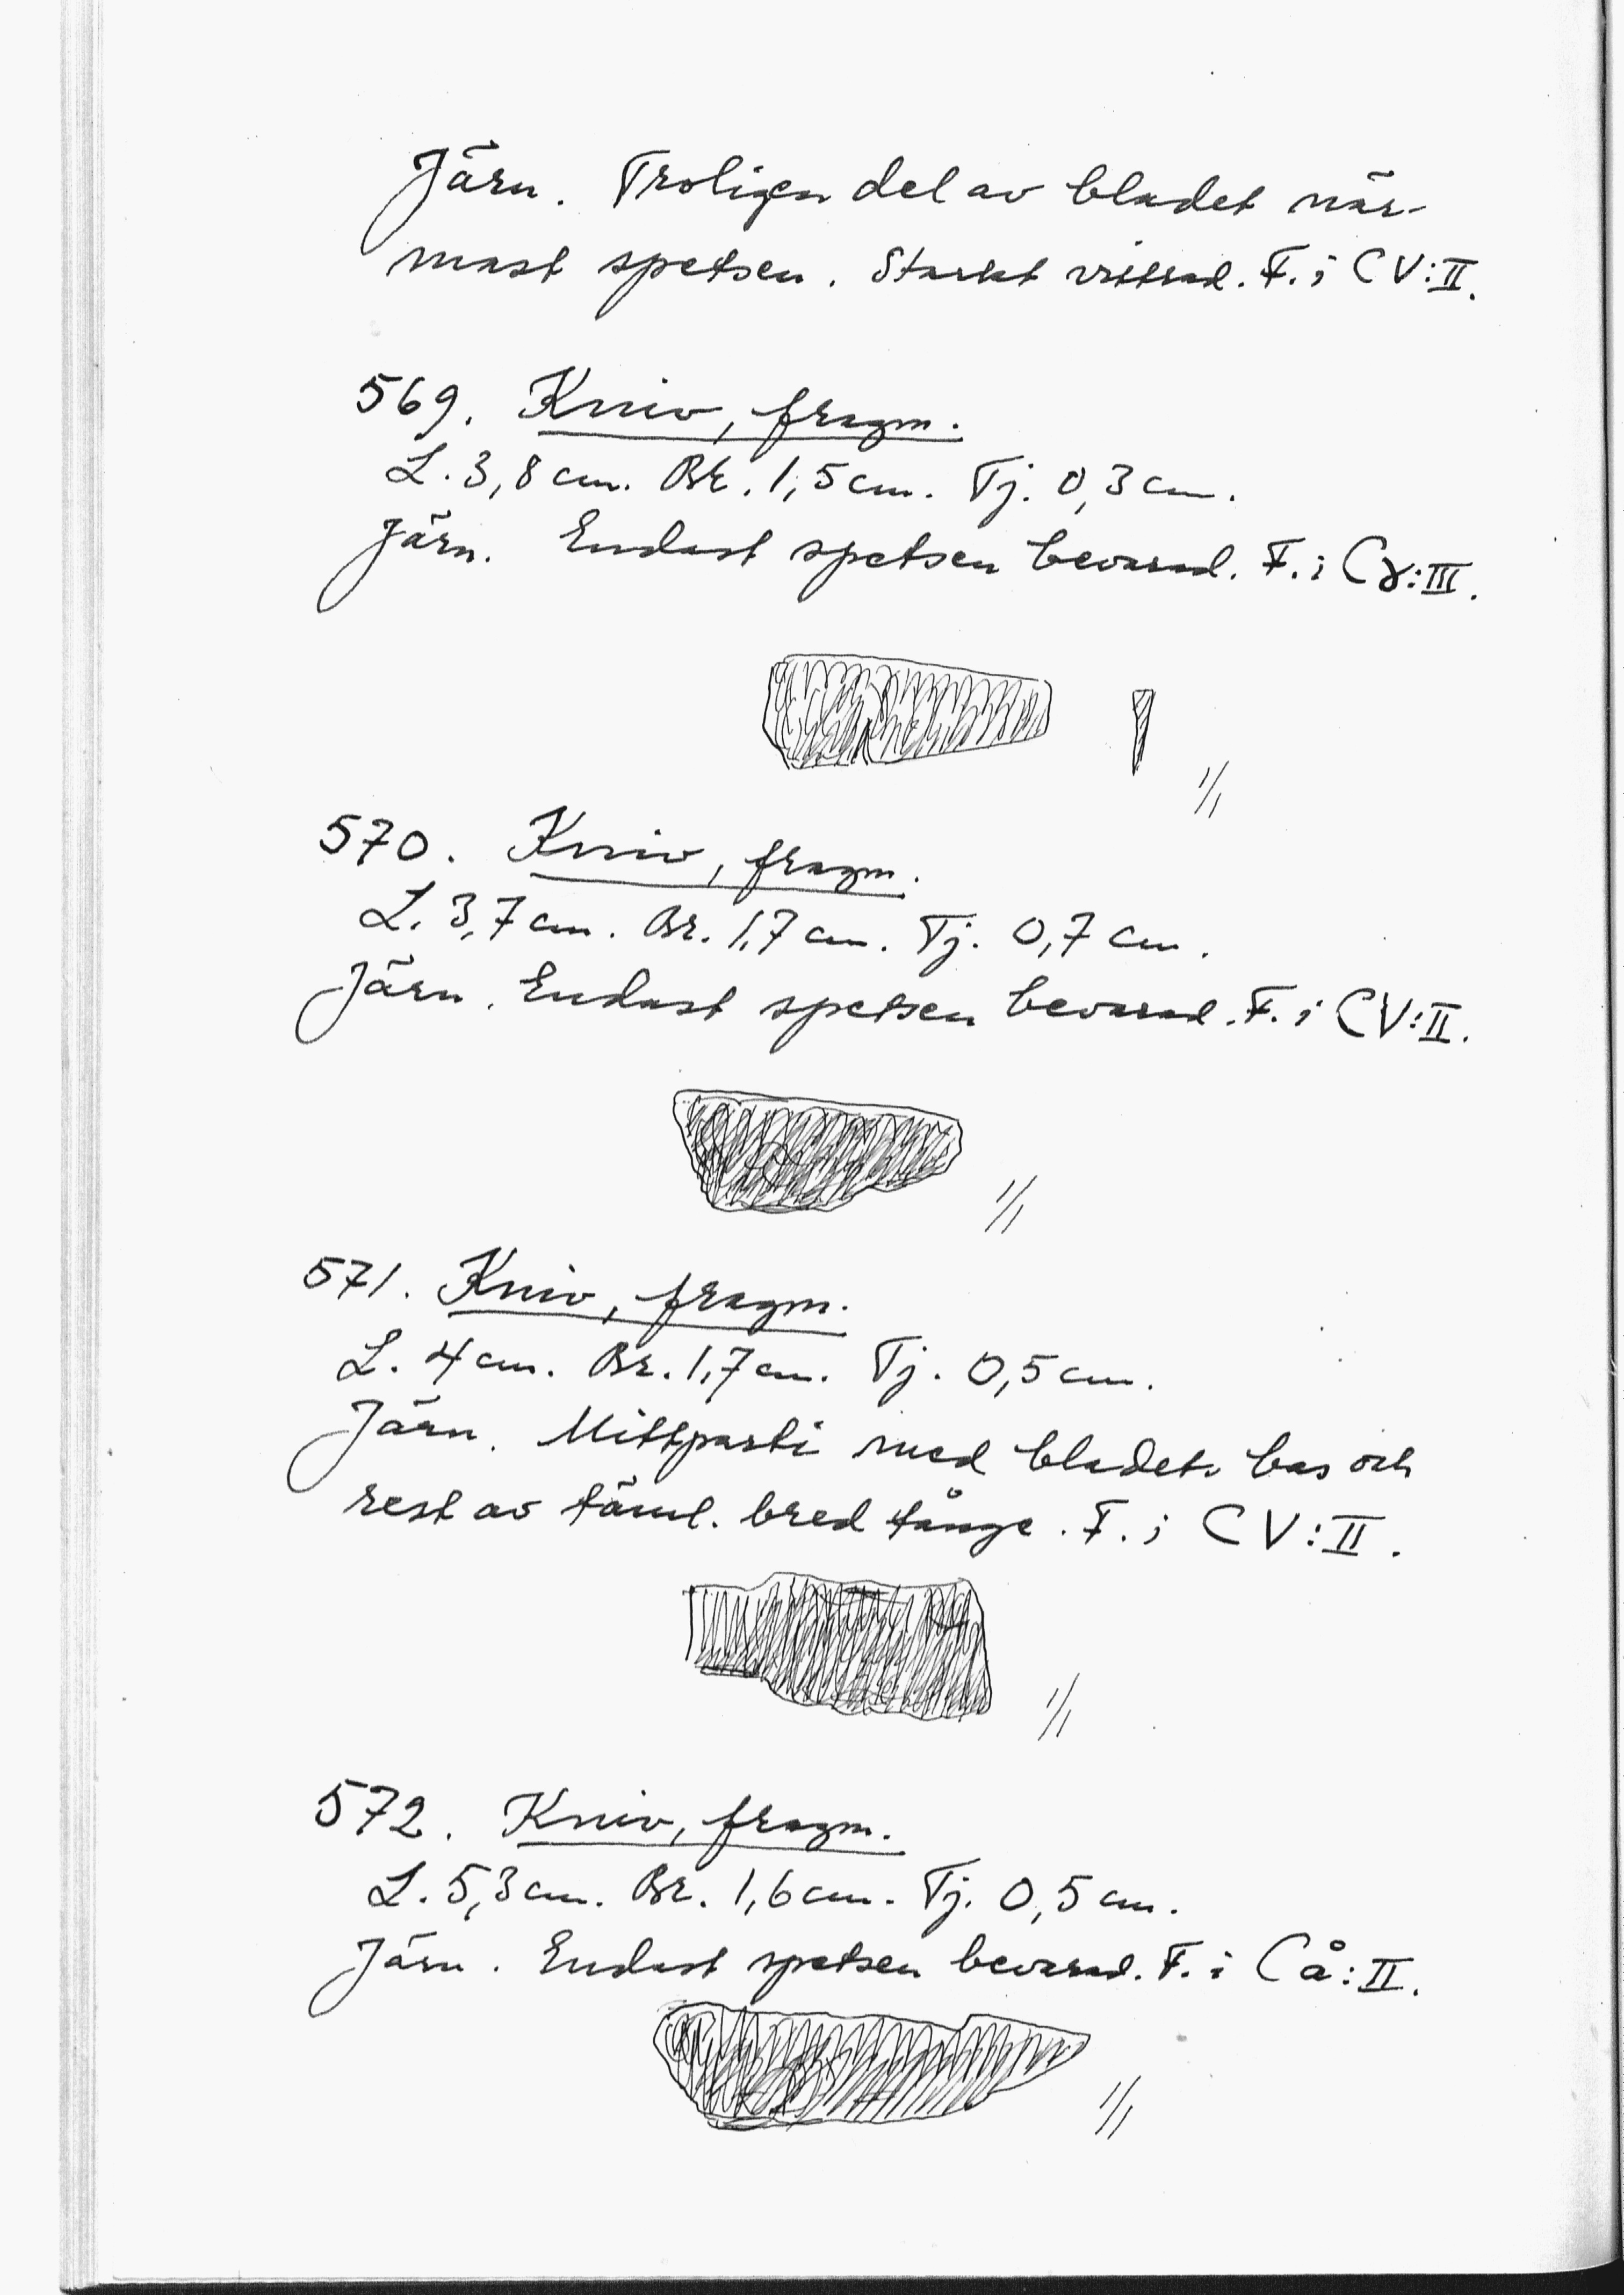 Järn. Troligen del av bladet när-
mast spetsen. Starkt vittrad. F. i CV:II.
569. Kniv, fragm.
L. 3,8 cm. Br. 1,5 cm. Tj. 0,3 cm.
Järn. Endast spetsen bevarad. F. i Cɣ:III.
1/1
570. Kniv, fragm.
L. 3,7 cm. Br. 1,7 cm. Tj. 0,7 cm.
Järn. Endast spetsen bevarad. F. i CV:II.
1/1
571. Kniv, fragm.
L. 4 cm. Br. 1,7 cm. Tj. 0,5 cm.
Järn. Mittparti med bladets bas och
rest av täml. bred tånge. F. i CV:II.
1/1
572. Kniv, fragm.
L. 5,3 cm. Br. 1,6 cm. Tj. 0,5 cm.
Järn. Endast spetsen bevarad. F. i Cå:II.
1/1